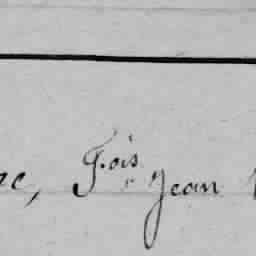 F.ois Jean